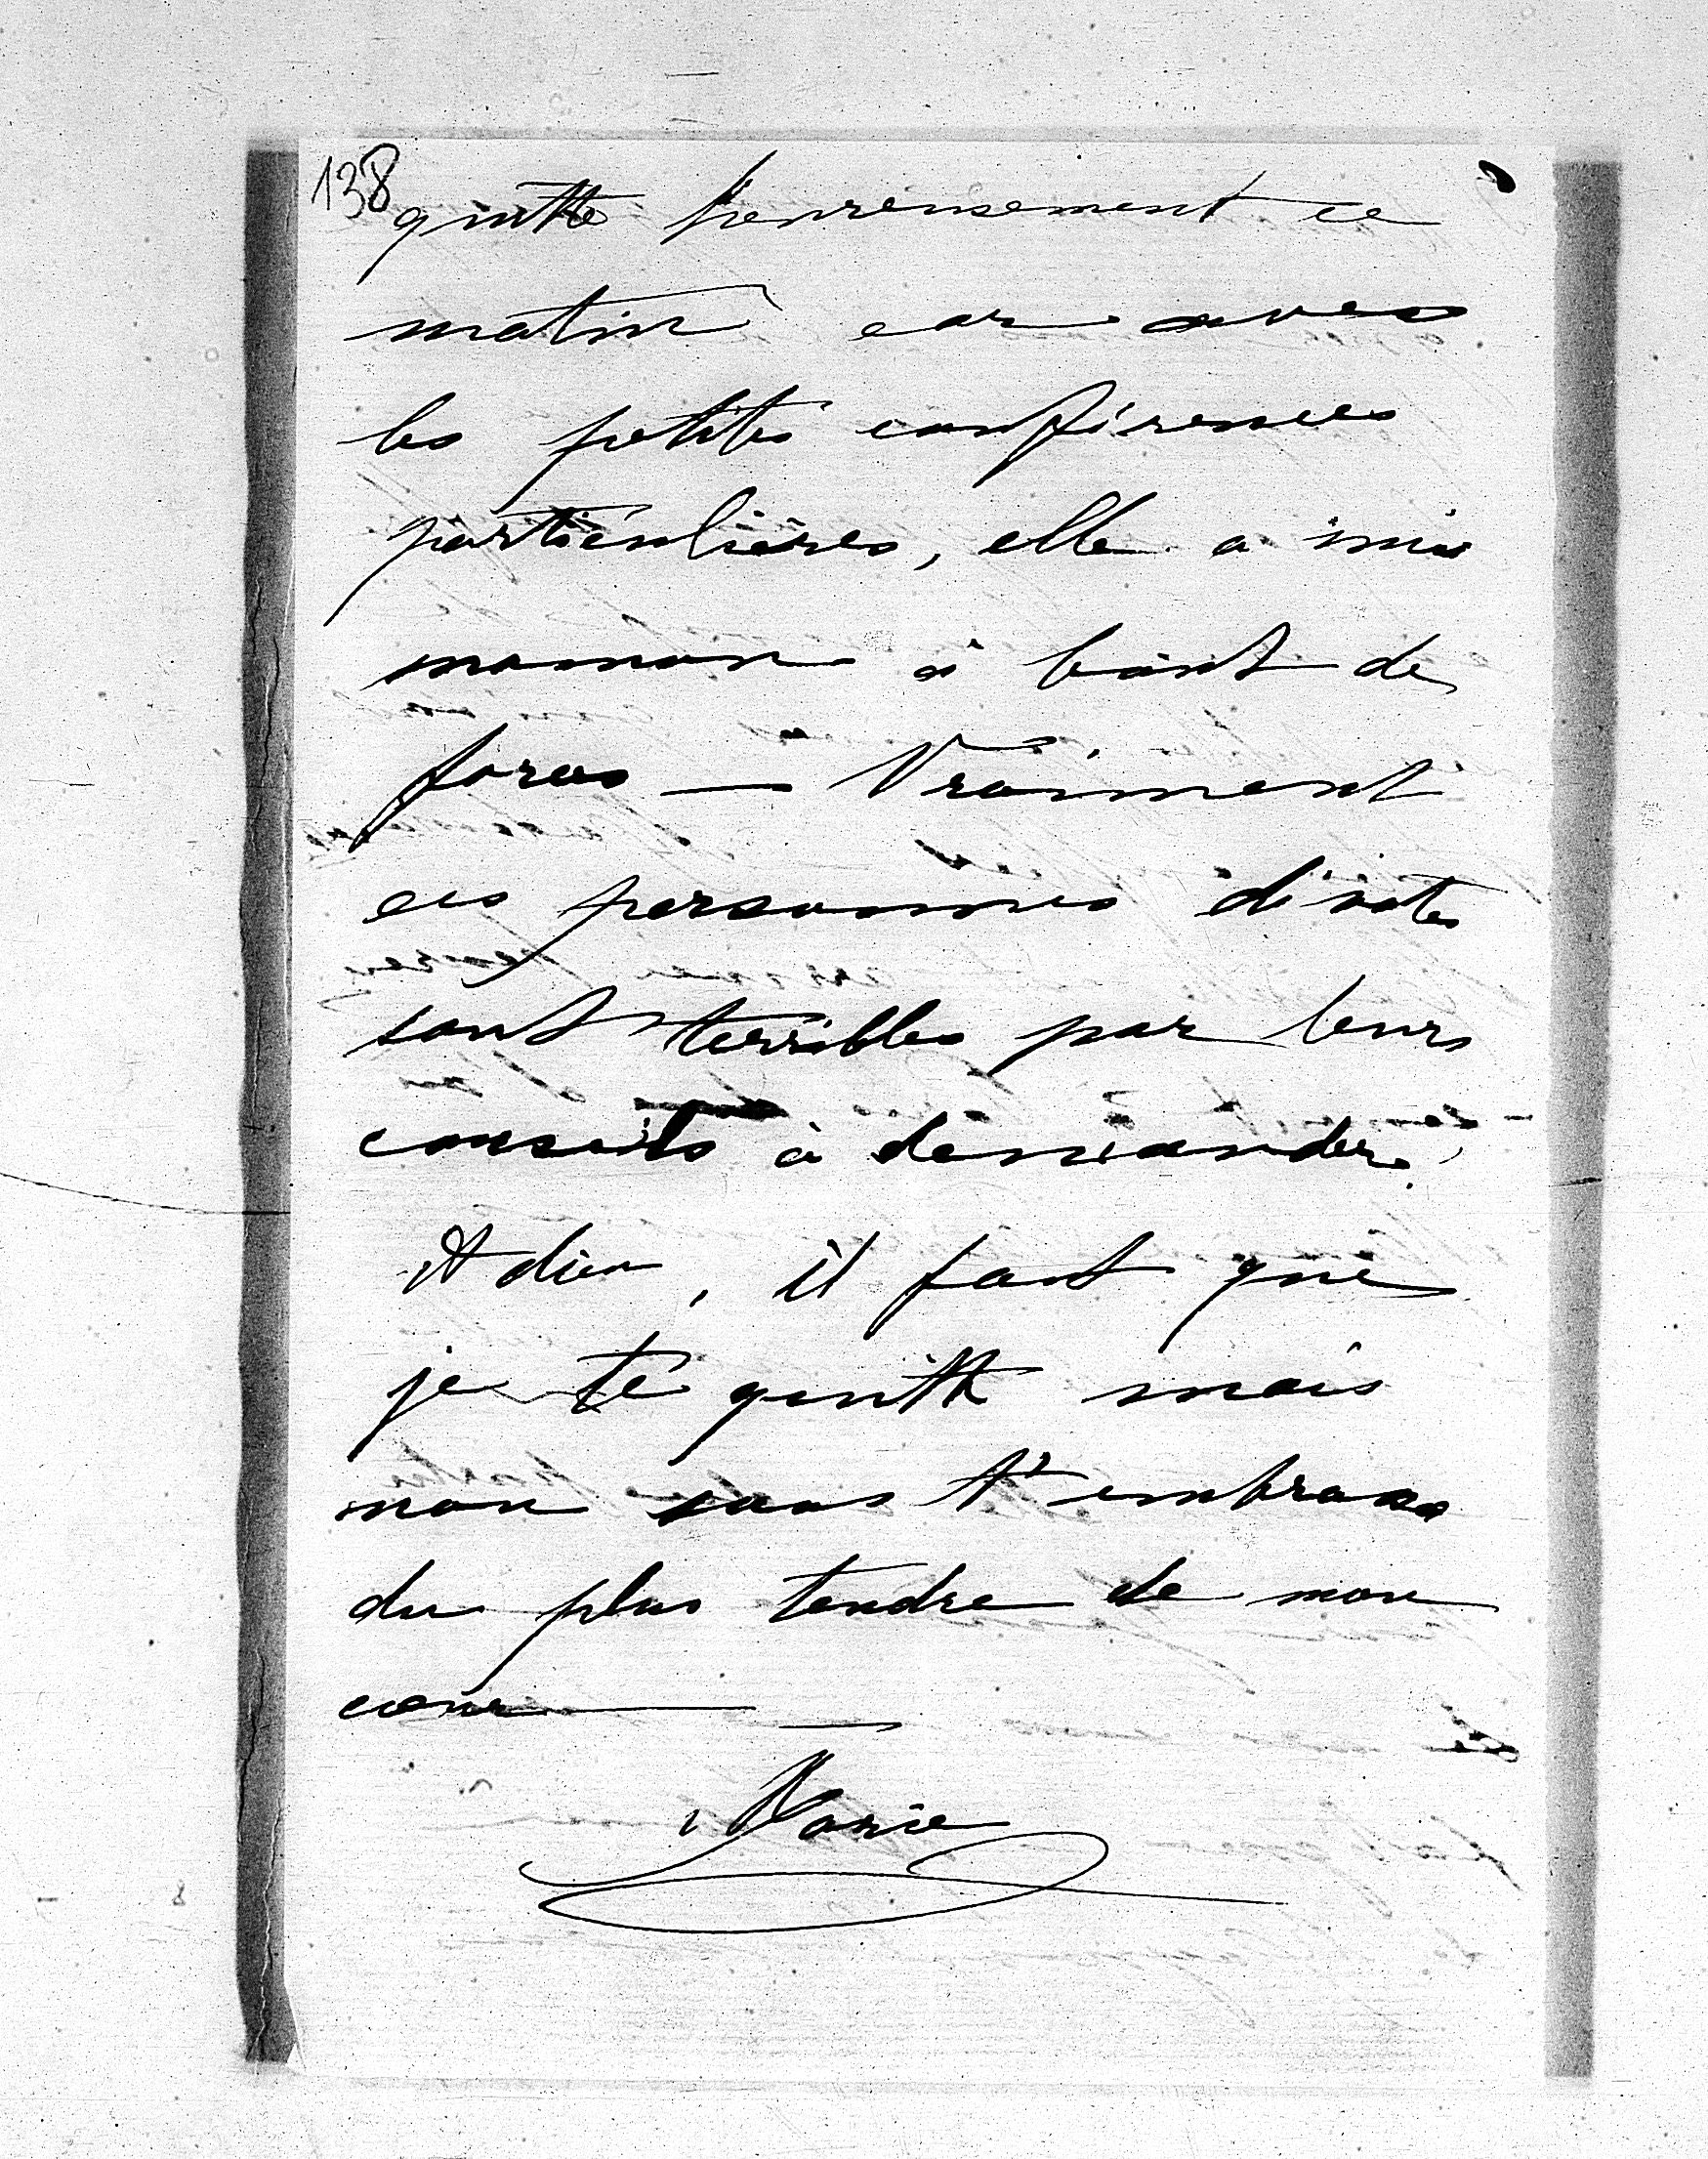 138
quitte heureusement ce
matin car avec
les petites conférences
particulières, elle a mis
maman à bout de
forces — Vraiment
ces personnes dévotes
sont terribles par leurs
conseils à demander.
Adieu, il faut que
je te quitte mais
non sans t'embrasser
du plus tendre de mon
cœur —
Marie